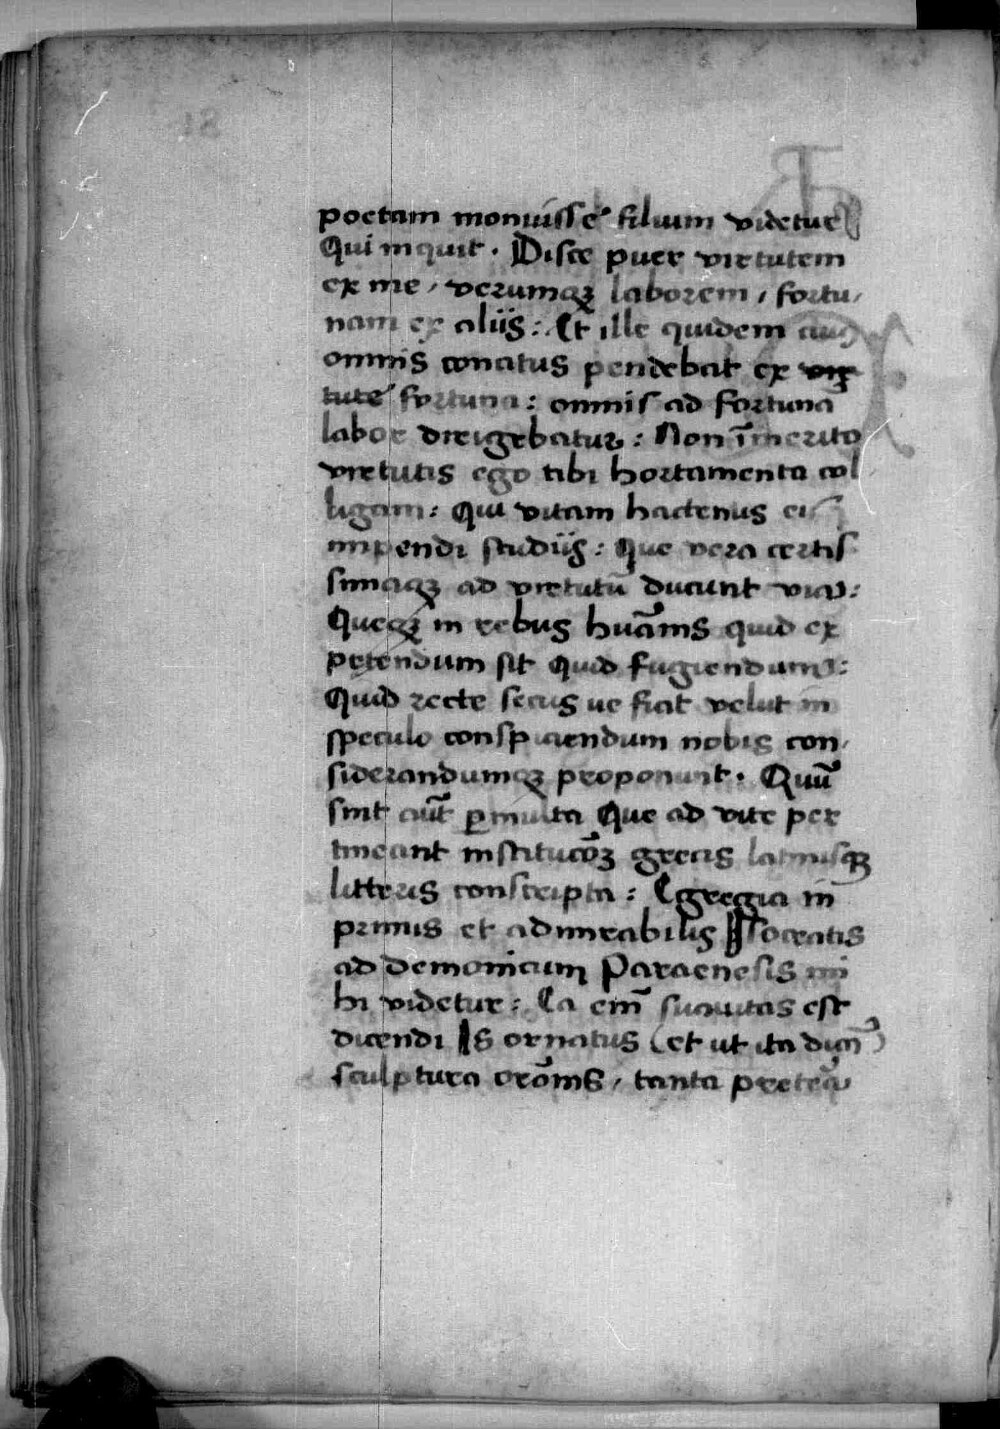 poetam monuisse filium videtur
Qui inquit · Disce puer virtutem
ex me, verumqꝫ laborem, fortu,
nam ex aliis: Et ille quidem cuiꝰ
omnis conatus pendebat ex vir
tute fortuna: omnis ad fortunā
labor dirigebatur: Non īmerito
virtutis ego tibi hortamenta col
ligam: Qui vitam hactenus
impendi studiis: Que vera certis
simaqꝫ ad virtutū ducunt via:
Queqꝫ in rebus huāms quid ex
petendum sit Quid fugiendum:
Quid recte secus ue fiat velut in
speculo conspiciendum nobis con,
siderandumqꝫ proponunt · Quū
sint aūt ꝑmulta Que ad vite per
tineant institucōꝫ grecis latinisqꝫ
litteris conscripta: Egregia in
primis et admirabilis Isocratis
ad Demonicum Paraenesis mi
hi videtur: Ea eīm suavitas est
dicendi Is ornatus (et ut ita dicā)
sculptura orōms, tanta pretereā